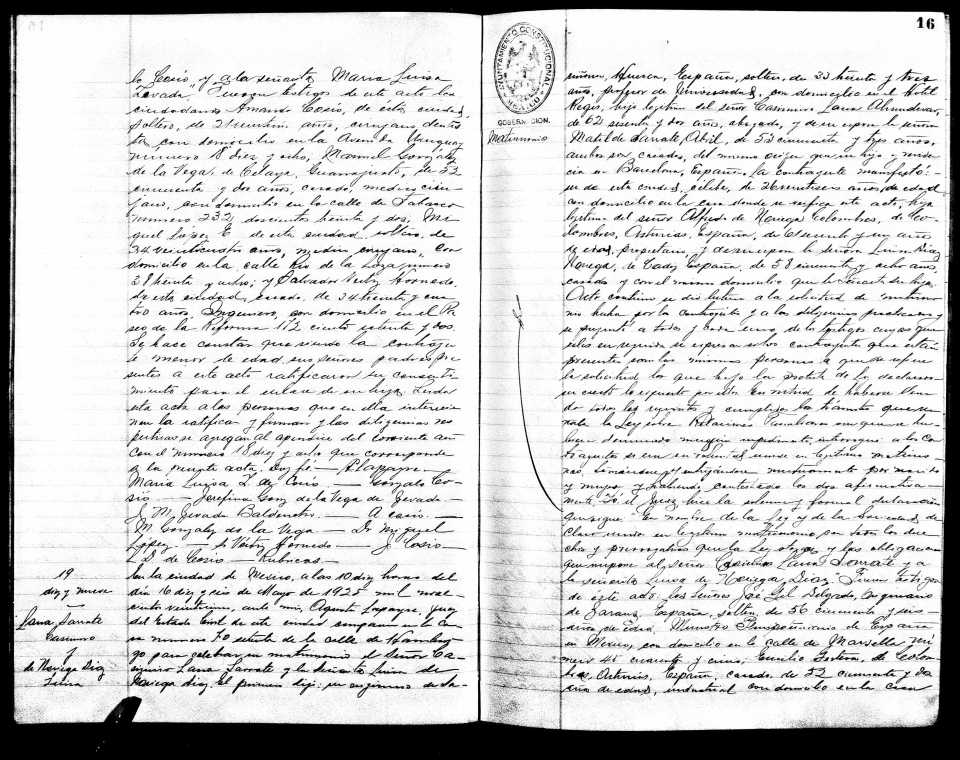 lo Cosío y a la señorita María Luisa
Zevada". Fueron testigos de este acto los
ciudadanos Armando Cosío, de esta ciudad,
soltero, de 21 veintiún años,
con domicilio en la Avenida Uruguay
número 18 diez y ocho, Manuel González
de la Vega, de Celaya, Guanajuato, de 52
cincuenta y dos años, casado,
con domicilio en la calle de Tabasco
número 232 doscientos treinta y dos, Mi
guel López E de esta ciudad, soltero, de
34 años, médico cirujano, con
domicilio en la calle Río de la Loza número
38 treinta y ocho; y Salvador Hornedo,
de esta ciudad, casado, de 34 treinta y cua
tro años, Ingeniero, con domicilio en el Pa
seo de la Reforma 172 ciento setenta y dos.
Se hace constar que siendo la contrayen
te menor de edad, sus señores padres pre
sentes a este acto ratificaron su consenti
miento para el enlace de su hija. Leída
esta acta a las personas que en ella intervie
nen la ratifican y firman y las diligencias res
pectivas se agregan al apéndice del corriente año
con el número 18 diez y ocho que corresponde
a la presente acta. Doy fé.— A Lappayre.—
María Luisa Z. de Cosío — Gonzalo Co
sío — Josefina Gonz de la Vega de Zevada —
J. M. Zevada — A Cosío.—
M. González de la Vega — Dr Miguel
López — S. Hornedo — J. Cosío —
L D. de Cosío — Rúbricas —
19
diez y nueve
Lana Sarrate
Casimiro
y
de Noriega Diaz
Luisa
En la ciudad de México, a las 10 diez horas del
día 16 diez y seis de Mayo de 1925 mil nove
cientos veinticinco, ante mí, Agustín Lappayre, Juez
del Estado Civil de esta ciudad comparecen en la ca
sa número 70 setenta de la calle de Hambur
go para celebrar su matrimonio el Señor Ca
simiro Lana Sarrate y la señorita Luisa de
Noriega Diaz. El primero dijo: ser ingeniero de Sa-
16
AYUNTAMIENTO CONSTITUCIONAL
MEXICO
GOBERNACION.
Matrimonio
Huesca, España, soltero, de 33 treinta y tres
años, profesor de Universidades, con domicilio en el Hotel
Regis, hijo legítimo del señor Casimiro Lana
de 62 sesenta y dos años, abogado, y de su esposa la señora
Matilde Sarrate Abril, de 53 cincuenta y tres años,
ambos son casados, del mismo origen que su hijo y residen
cia en Barcelona, España. La contrayente manifestó:
ser de esta ciudad, célibe, de 26 veintiseis años de edad
con domicilio en la casa donde se verifica este acto, hija
legítima del señor Alfredo de Noriega Colombres, de Co
lombres, Asturias, España, de 61 sesenta y un años
de edad, propietario y de su esposa la señora Luisa Diaz
Noriega, de Cadiz España, de 58 cincuenta y ocho años,
casados y con el mismo domicilio que la citada su hija.
Acto continuo se dió lectura a la solicitud de matrimo
nio hecha por los contrayentes y a las diligencias practicadas y
se preguntó a todos y cada uno de los testigos cuyos
en seguida se expresan si los contrayentes que están
presentes son las mismas personas a que se refiere
la solicitud, los que bajo la protesta de ley declararon
ser cierto lo expuesto por ellos. En virtud de haberse llena
do todos los requisitos y cumplido los trámites que se
ñala la Ley sobre Relaciones Familiares sin que se hu
biera denunciado ningún impedimento, interrogué a los con
trayentes si era su voluntad unirse en legítimo matrimo
nio, recibiéndose y entregándose mutuamente por marido
y mujer y habiendo contestado los dos afirmativa
mente, Yo el Juez, hice la solemne y formal declaración
que sigue: "En nombre de la Ley y de la Sociedad, de
claro unidos en legítimo matrimonio con todos los dere
chos y prerrogativas que la Ley otorga y las obligaciones
que impone al señor Casimiro Lana Sarrate y a
la señorita Luisa de Noriega Diaz". Fueron testigos
de este acto los Señores José Gil Delgado,
España, soltero, de 56 cincuenta y seis
años de edad, Ministro Plenipotenciario de España
en México, con domicilio en la calle de Marsella nú
mero 45 cuarenta y cinco, Emilio, de Colom
bres, Asturias, España, casado, de 52 cincuenta y dos
años de edad, industrial con domicilio en la casa